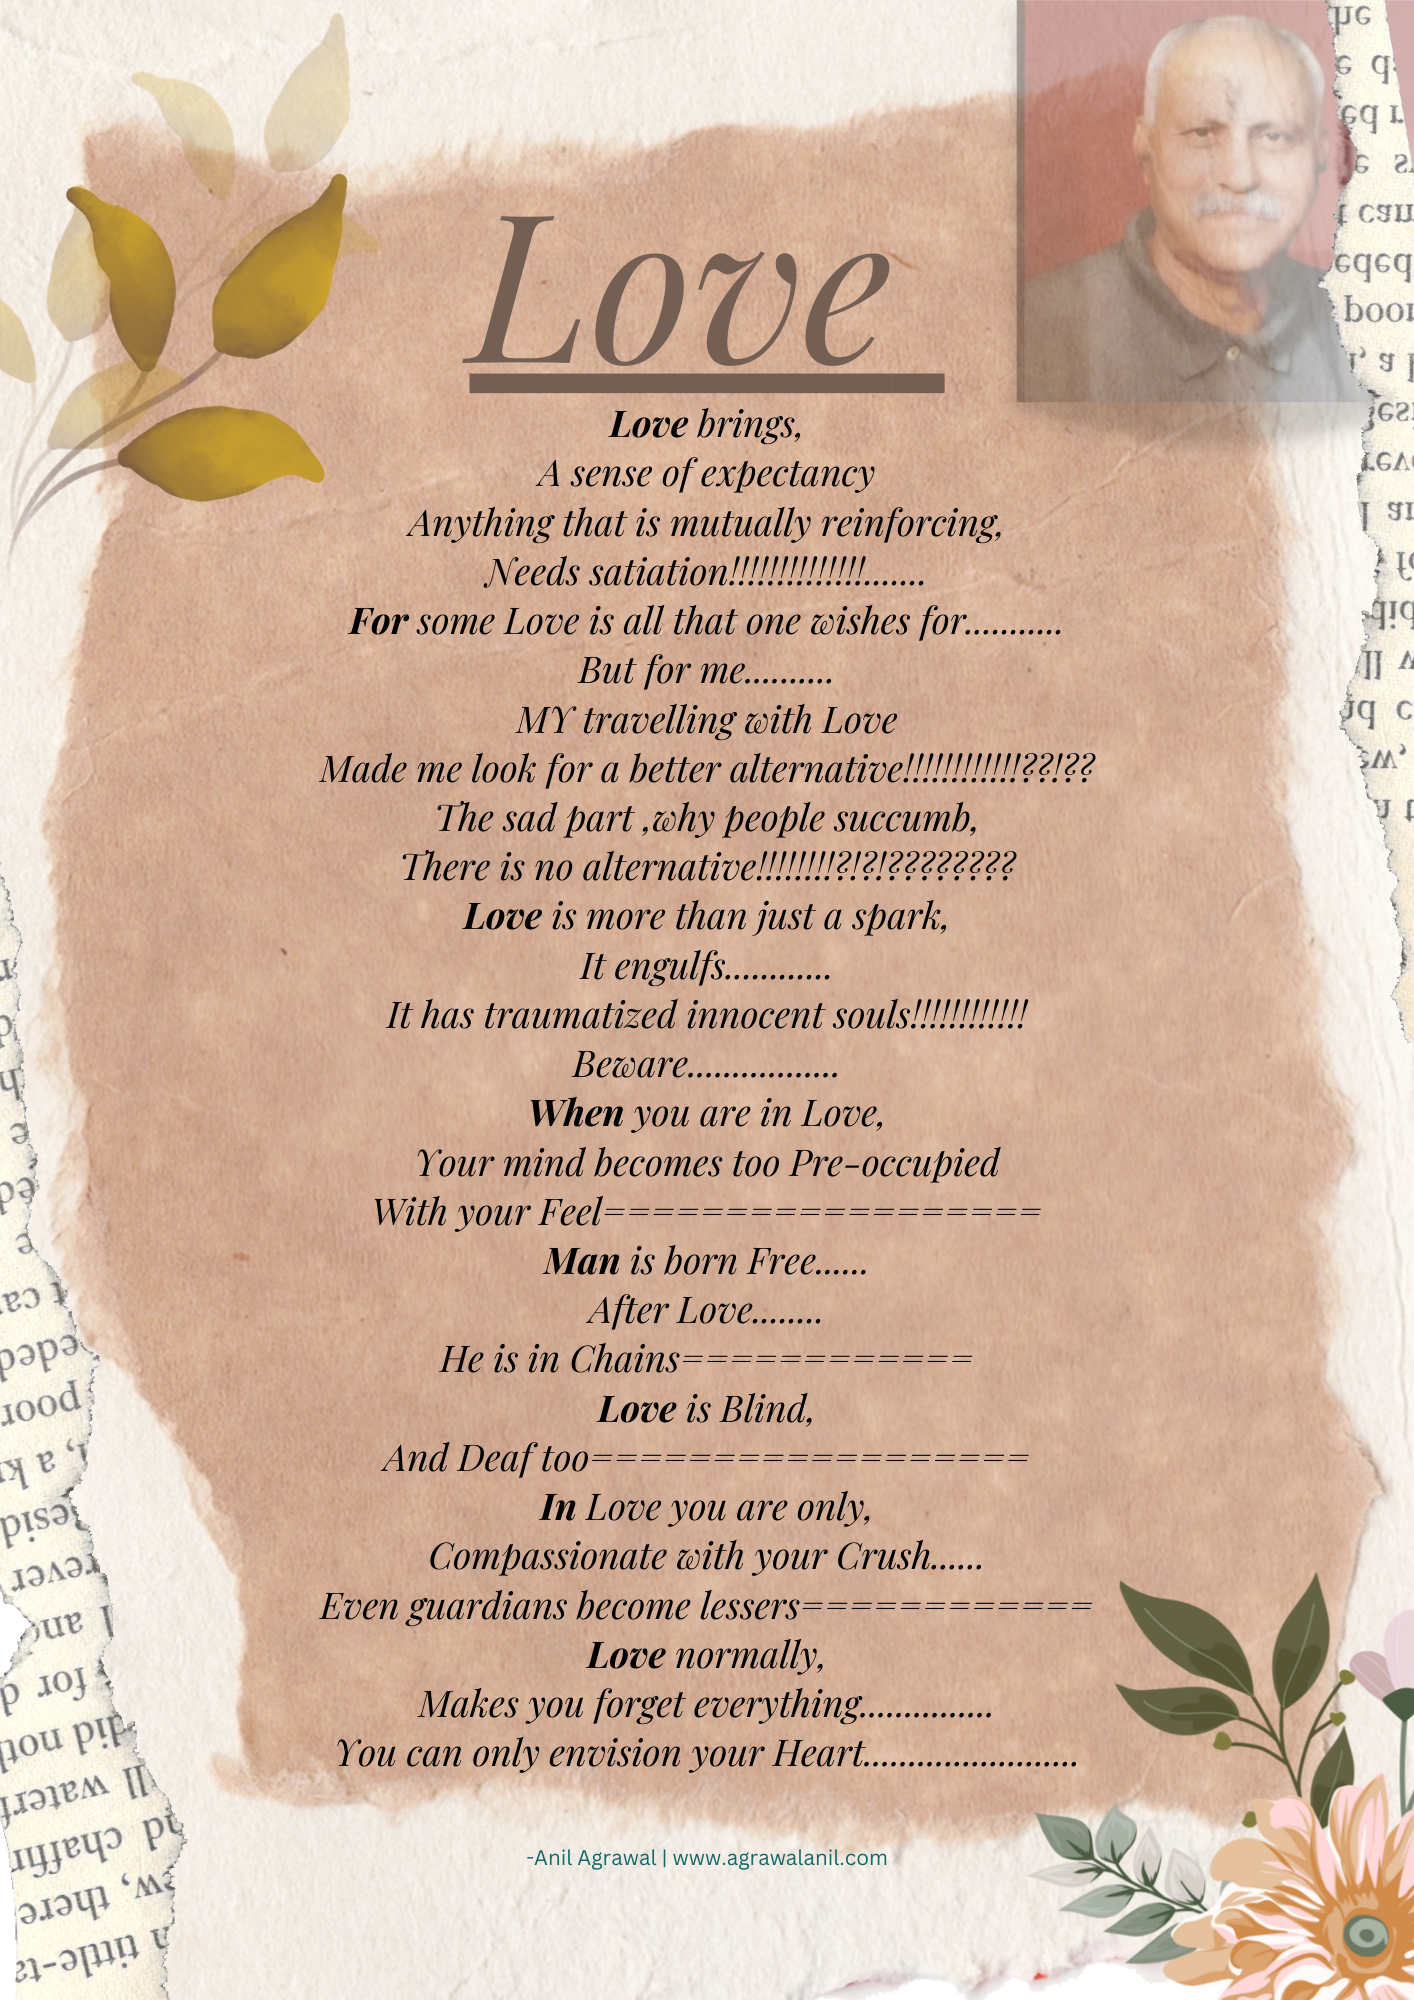 Love
Love brings,
A sense of expectancy
Anything that is mutually reinforcing,
Needs satiation!!!!!!!!!!!!!!!.......
For some Love is all that one wishes for...........
But for me..........
MY travelling with Love
Made me look for a better alternative!!!!!!!!!!!!!??!??
The sad part ,why people succumb,
There is no alternative!!!!!!!!?!?!????????
Love is more than just a spark,
It engulfs............
It has traumatized innocent souls!!!!!!!!!!!!!
Beware.................
When you are in Love,
Your mind becomes too Pre-occupied
With your Feel==================
Man is born Free......
After Love........
He is in Chains============
Love is Blind,
And Deaf too==================
In Love you are only,
Compassionate with your Crush......
Even guardians become lessers============
Love normally,
Makes you forget everything...............
You can only envision your Heart........................
-Anil Agrawal | www.agrawalanil.com